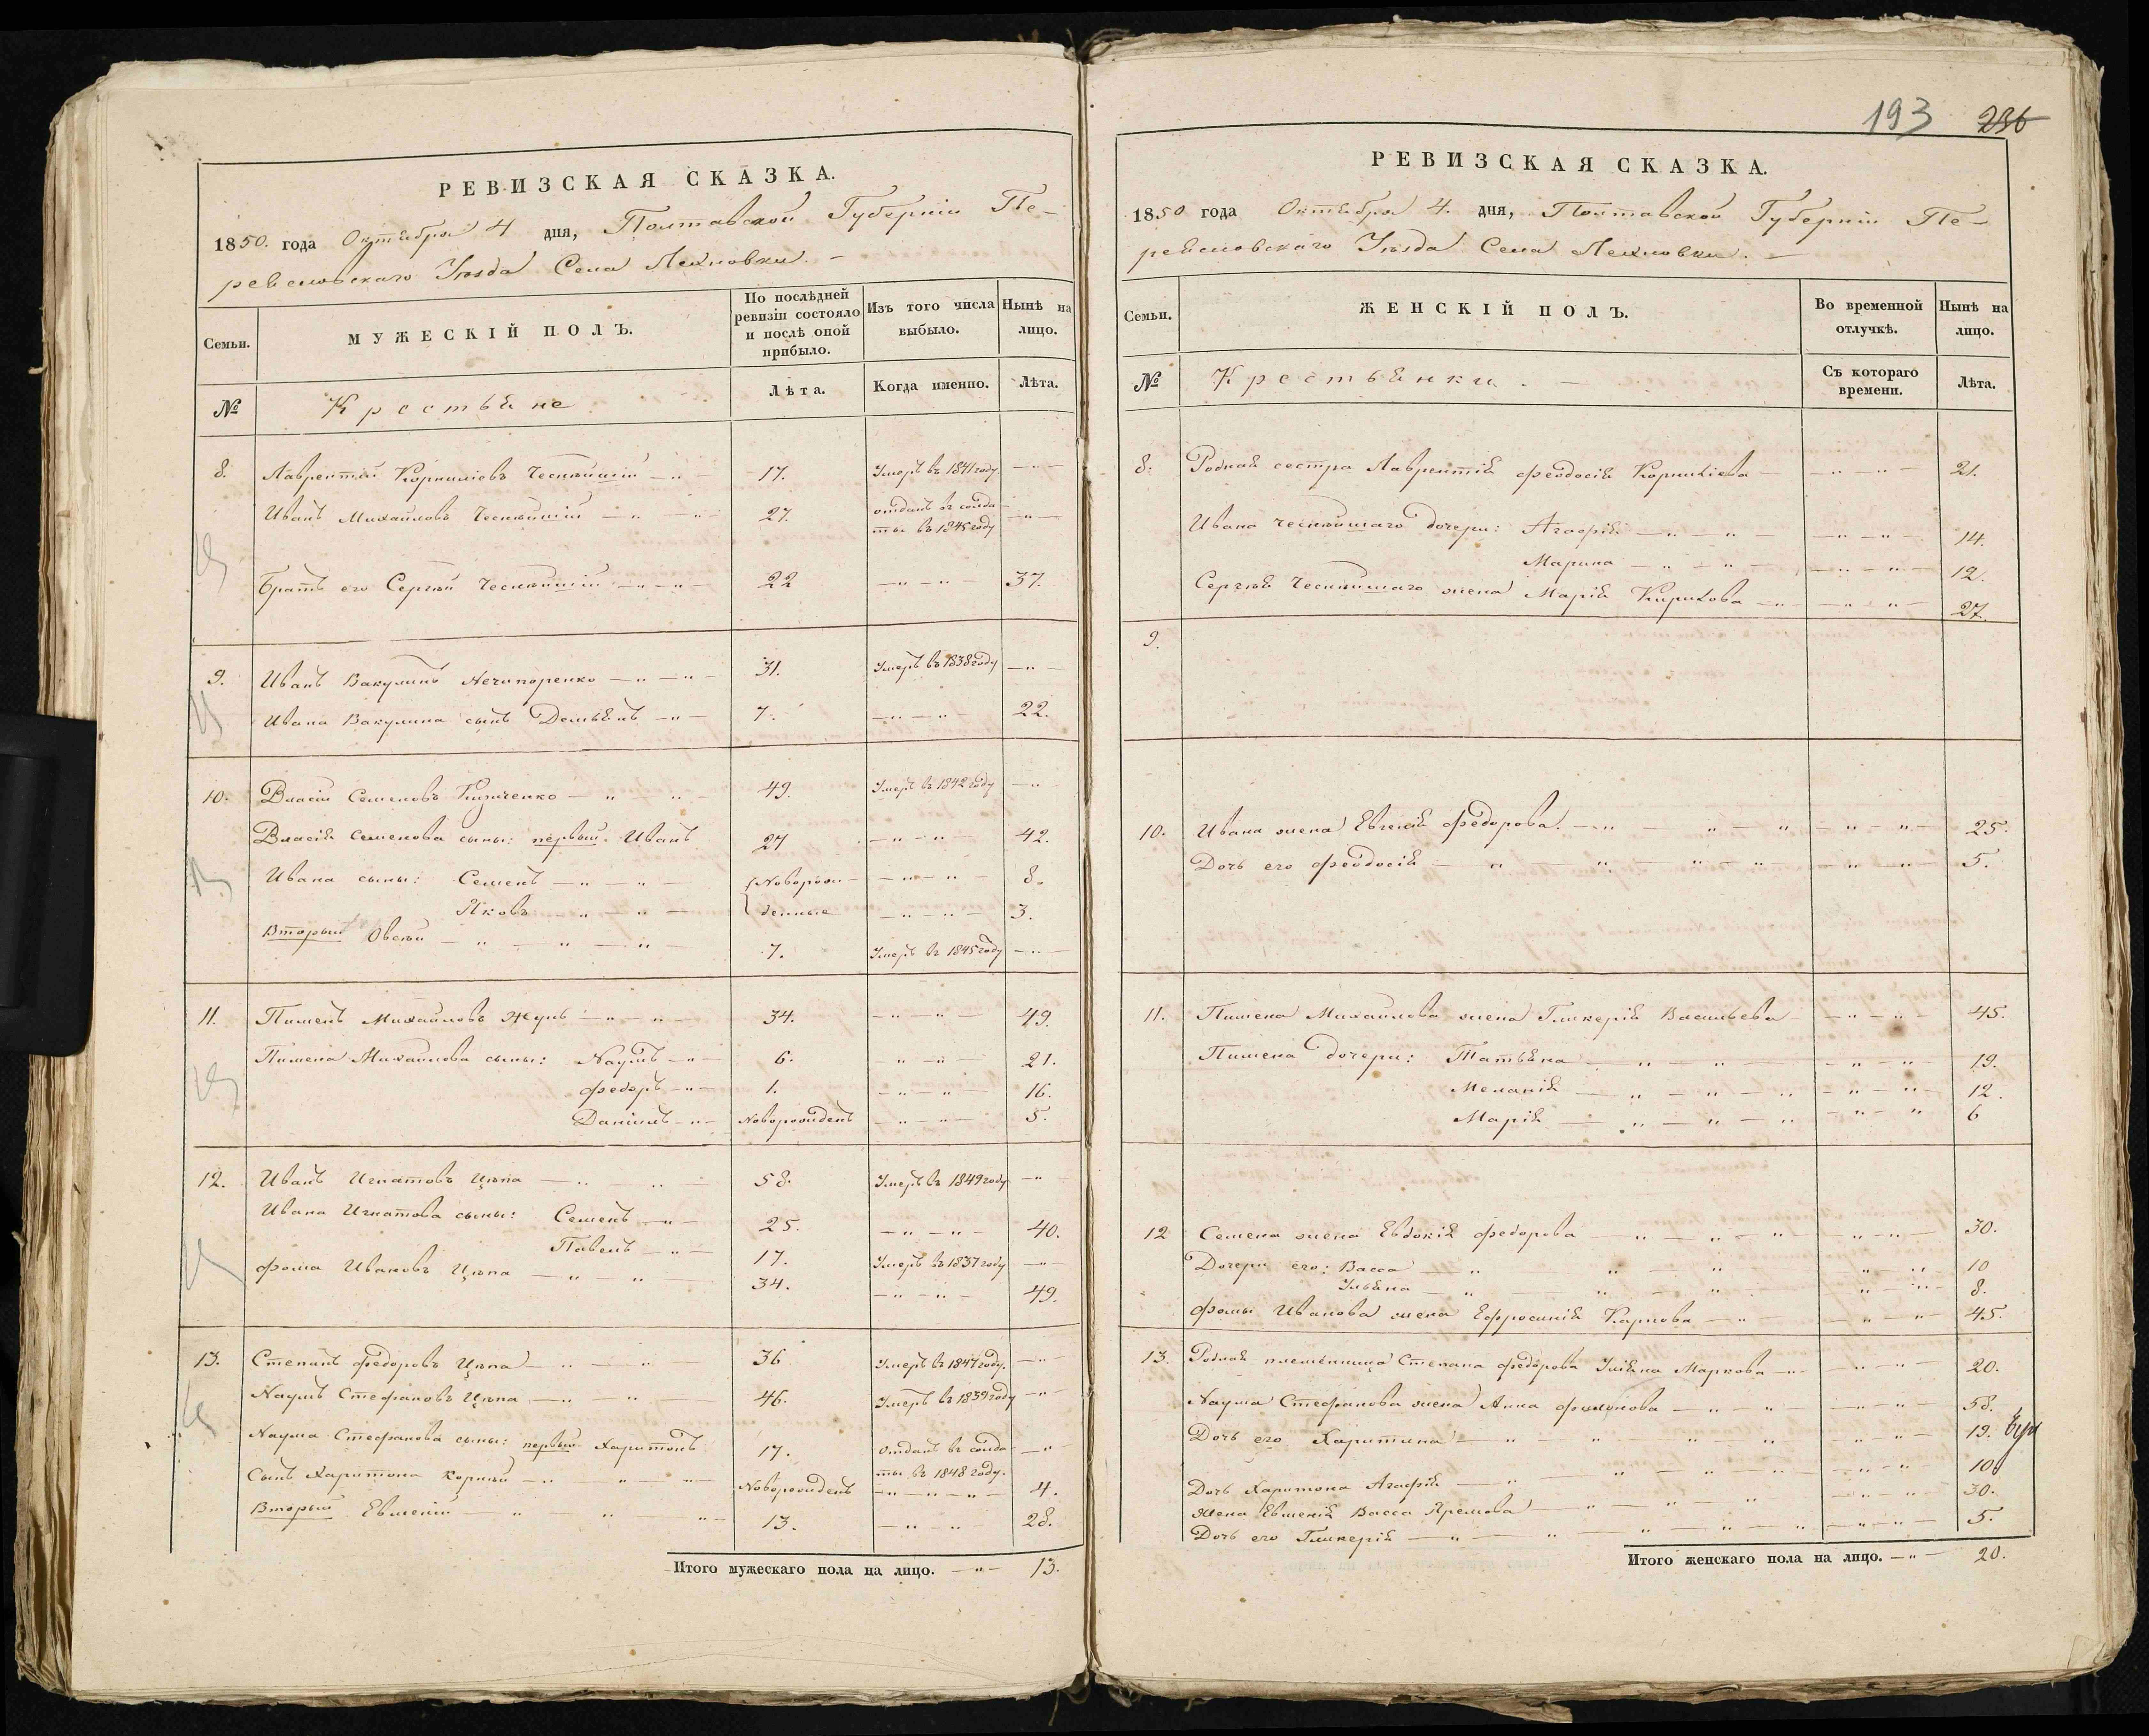 193 236
РЕВИЗСКАЯ СКАЗКА.
1850. года Октября 4 дня, Полтавской Губерніи Пе-
реяславскаго Уѣзда Села Лехновки. -
Семьи.
МУЖЕСКІЙ ПОЛЪ.
По послѣдней ревизіи состояло и послѣ оной прибыло.
Изъ того числа выбыло.
Нынѣ на лицо.
№
Крестьяне
Лѣта.
Когда именно.
Лѣта.
8. Лаврентій Корниліевъ Чеснѣйшій 17. Умеръ въ 1841 году
Иванъ Михайловъ Чеснѣйшій 27. отданъ въ солда-
ты въ 1845 году
Братъ его Сергѣй Чеснѣйшій 22 37.
9. Иванъ Вакулинъ Нечипоренко 31. Умеръ въ 1838 году
Ивана Вакулина сынъ Демьянъ 7. 22.
10. Власій Семеновъ 49. Умеръ въ 1842 году
Власія Семенова сыны: первый Иванъ 27 42.
Ивана сыны: Семенъ Новорож- 8.
Яковъ денные 3.
Вторый Овсѣй 7. Умеръ въ 1845 году
11. Пименъ Михайловъ Жунь 34. 49.
Пимена Михайлова сыны: Наумъ 6. 21.
Федоръ 1. 16.
Даніилъ Новорожденъ 5.
12. Иванъ Игнатовъ Цѣпа 58. Умеръ въ 1849 году
Ивана Игнатова сыны: Семенъ 25. 40.
Павелъ 17. Умеръ въ 1837 году
Фома Ивановъ Цѣпа 34. 49.
13. Степанъ Федоровъ Цѣпа 36 Умеръ въ 1847 году.
Наумъ Стефановъ Цѣпа 46. Умеръ въ 1839 году
Наума Стефанова сыны: первый Харитонъ 17. Отданъ въ солда-
ты въ 1848 году.
Сынъ Харитона Корнѣй Новорожденъ 4.
Вторый Евменій 13. 28.
Итого мужескаго пола на лицо. 13.
РЕВИЗСКАЯ СКАЗКА.
1850 года Октября 4. дня, Полтавской Губерніи Пе-
реяславскаго Уѣзда Села Лехновки.
Семьи.
ЖЕНСКІЙ ПОЛЪ.
Во временной отлучкѣ.
Нынѣ на лицо.
№
Крестьянки.
Съ котораго времени.
Лѣта.
8. Родная сестра Лаврентія Феодосія Корниліева 21.
Ивана Чеснѣйшаго дочери: Агафія 14.
Марина 12.
Сергѣя Чеснѣйшаго жена Марія Кирилова 27.
9.
10. Ивана жена Евгенія Федорова. 25.
Дочь его Феодосія 5.
11. Пимена Михайлова жена Гликерія Васильева 45.
Пимена дочери: Татьяна 19.
Меланія 12.
Марія 6
12 Семена жена Евдокія Федорова 30.
Дочери его: Васса 10
Ульяна 8.
Фомы Иванова жена Ефросинія Карпова 45.
13. Родная племянница Степана Федорова Уліяна Маркова 20.
Наума Стефанова жена Анна 58.
Дочь его Харитина 19.
Дочь Харитона Агафія 10
Жена Евменія Васса Яремова 30.
Дочь его Гликерія 5.
Итого женскаго пола на лицо. 20.